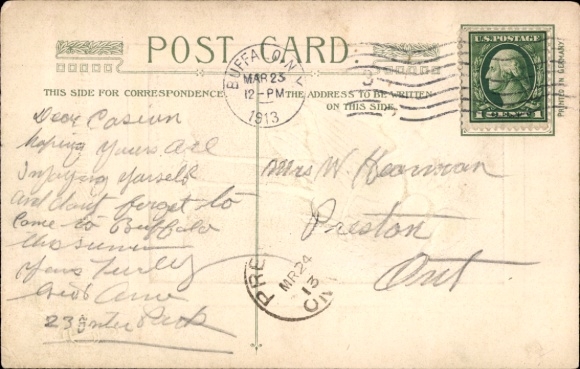 POST CARD
THIS SIDE FOR CORRESPONDENCE.
THE ADDRESS TO BE WRITTEN
ON THIS SIDE
BUFFALO, N.Y.
MAR 23
12-PM
1913
U.S. POSTAGE
1 CENT 1
PRINTED IN GERMANY
Dear
hoping yours all
Injoying yourself
and dont forget to
Come to Buffalo
this
yours
23
Mrs W.
Preston
Ont
PRE
MR 24
13
ON